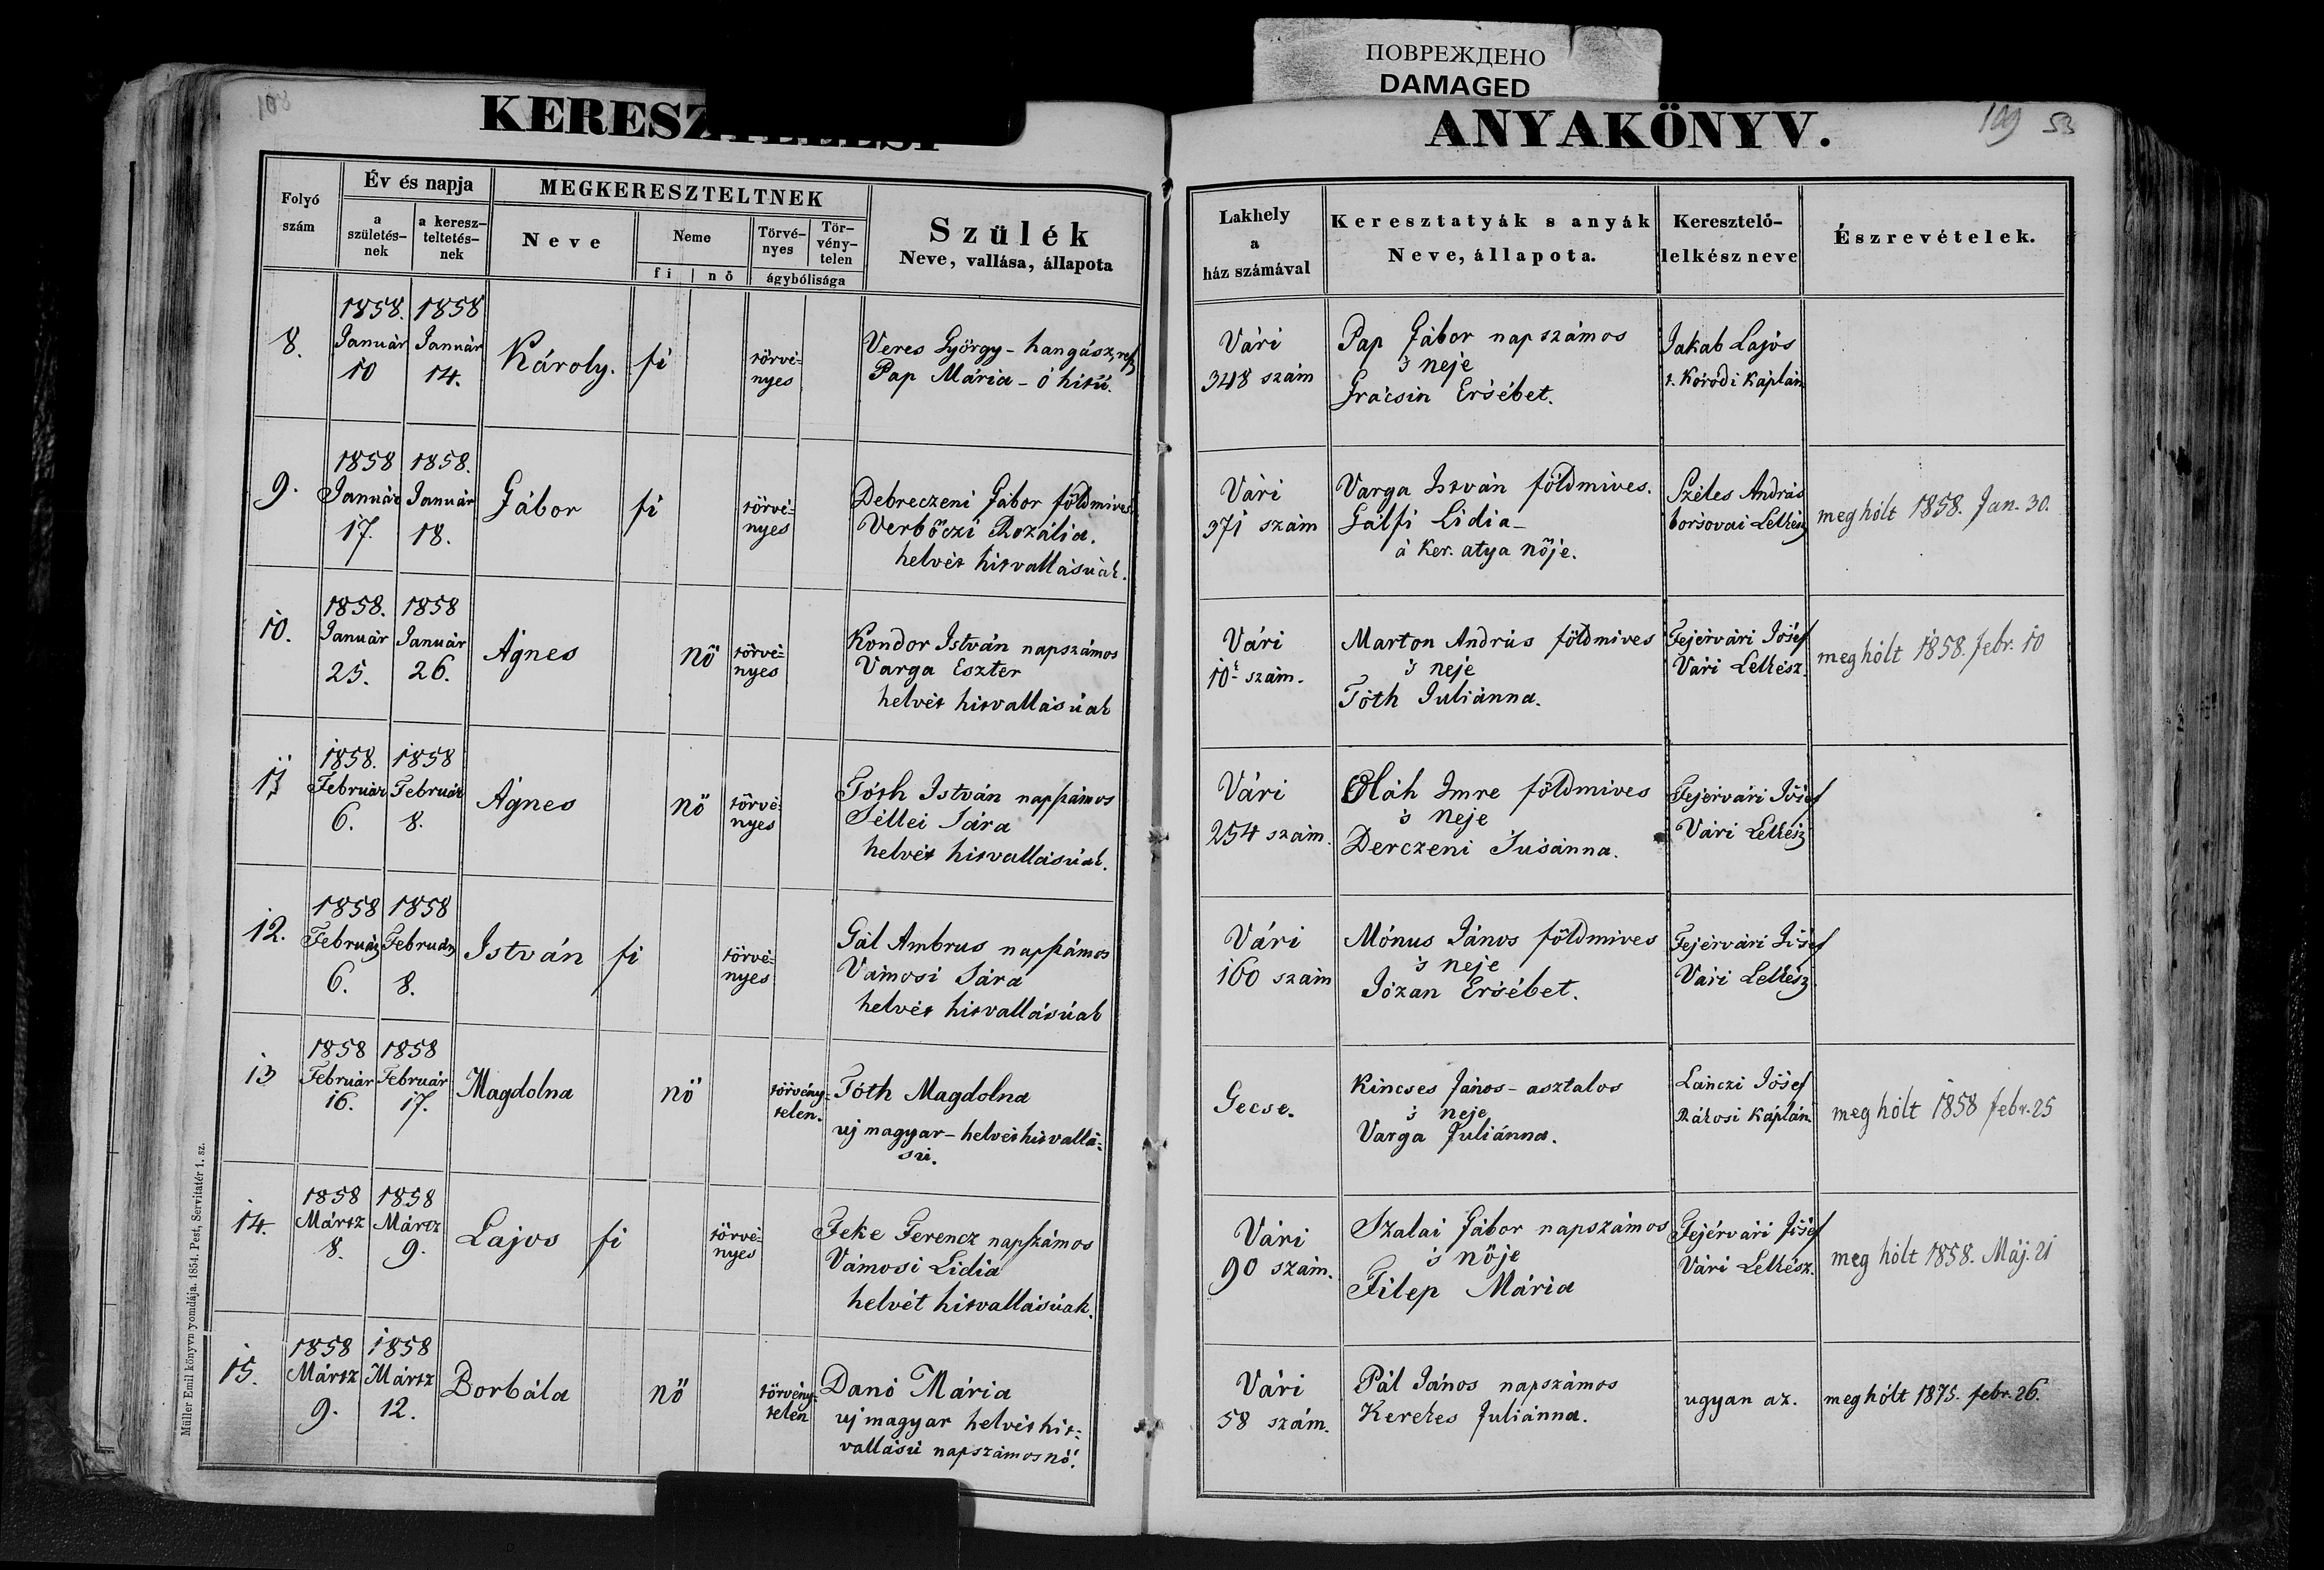 ПОВРЕЖДЕНО
DAMAGED
108
KERESZTELÉSI
ANYAKÖNYV.
109 53
Folyó
szám
Év és napja
a
születés-
nek
a keresz-
teltetés-
nek
MEGKERESZTELTNEK
Neve
Neme
fi | nő
Törvé-
nyes
Tör-
vény-
telen
ágybólisága
Szülék
Neve, vallása, állapota
Lakhely
a
ház számával
Keresztatyák s anyák
Neve, állapota.
Keresztelő-
lelkész neve
Észrevételek.
8.
1858. 1858
Január Január
10 14.
Károly. fi
törvé-
nyes
Veres György - hangász, ref
Pap Mária - ó hitü.
Vári
348 szám
Pap Gábor napszámos
's neje
Grácsin Ersébet.
Jakab Lajos
t. Kóródi Káplán
9.
1858 1858.
Január Január
17. 18.
Gábor fi
törvé-
nyes
Debreczeni Gábor földmives
Verbőczi Rozália.
helvét hitvallásúak.
Vári
371 szám
Varga István földmives.
Gálfi Lidia-
a ker. atya nője.
Széles András
borsovai Lelkész
meg hólt 1858. Jan. 30.
10.
1858. 1858
Január Január
25. 26.
Ágnes nő
törvé-
nyes
Kondor István napszámos
Varga Eszter
helvét hitvallásúak
Vári
10. szám.
Marton András földmives
's neje
Tóth Juliánna.
Fejérvári Jósef
Vári Lelkész.
meg hólt 1858. febr. 10
11
1858. 1858
Február Február
6. 8.
Ágnes nő
törvé-
nyes
Tóth István napszámos
Séllei Sára
helvét hitvallásúak.
Vári
254 szám.
Oláh Imre földmives
's neje
Derczeni Susánna.
Fejérvári Jósef
Vári Lelkész
12.
1858 1858
Február Február
6. 8.
István fi
törvé-
nyes
Gál Ambrus napszámos
Vámosi Sára
helvét hitvallásúak
Vári
160 szám
Mónus János földmives
's neje
Józan Ersébet.
Fejérvári Jósef
Vári Lelkész
13
1858 1858
Február Február
16. 17.
Magdolna nő
törvény-
telen.
Tóth Magdolna
uj magyar - helvét hitvallá-
sú.
Gecse.
Kincses János - asztalos
's neje
Varga Juliánna.
Lánczi Jósef
Rákosi Káplán.
meg hólt 1858 febr. 25
14.
1858 1858
Mártz Mártz
8. 9.
Lajos fi
törvé-
nyes
Feke Ferencz napszámos
Vámosi Lidia
helvét hitvallásúak.
Vári
90 szám.
Szalai Gábor napszámos
's nője
Filep Mária
Fejérvári Jósef
Vári Lelkész.
meg hólt 1858. Máj. 21
15.
1858 1858
Mártz Mártz
9. 12.
Borbála nő
törvény-
telen
Danó Mária
uj magyar helvét hit-
vallású napszámosnő.
Vári
58 szám.
Pál János napszámos
Kerekes Juliánna.
ugyan az.
meg hólt 1875. febr. 26.
Müller Emil könyvnyomdája. 1854. Pest, Servitatér 1. sz.